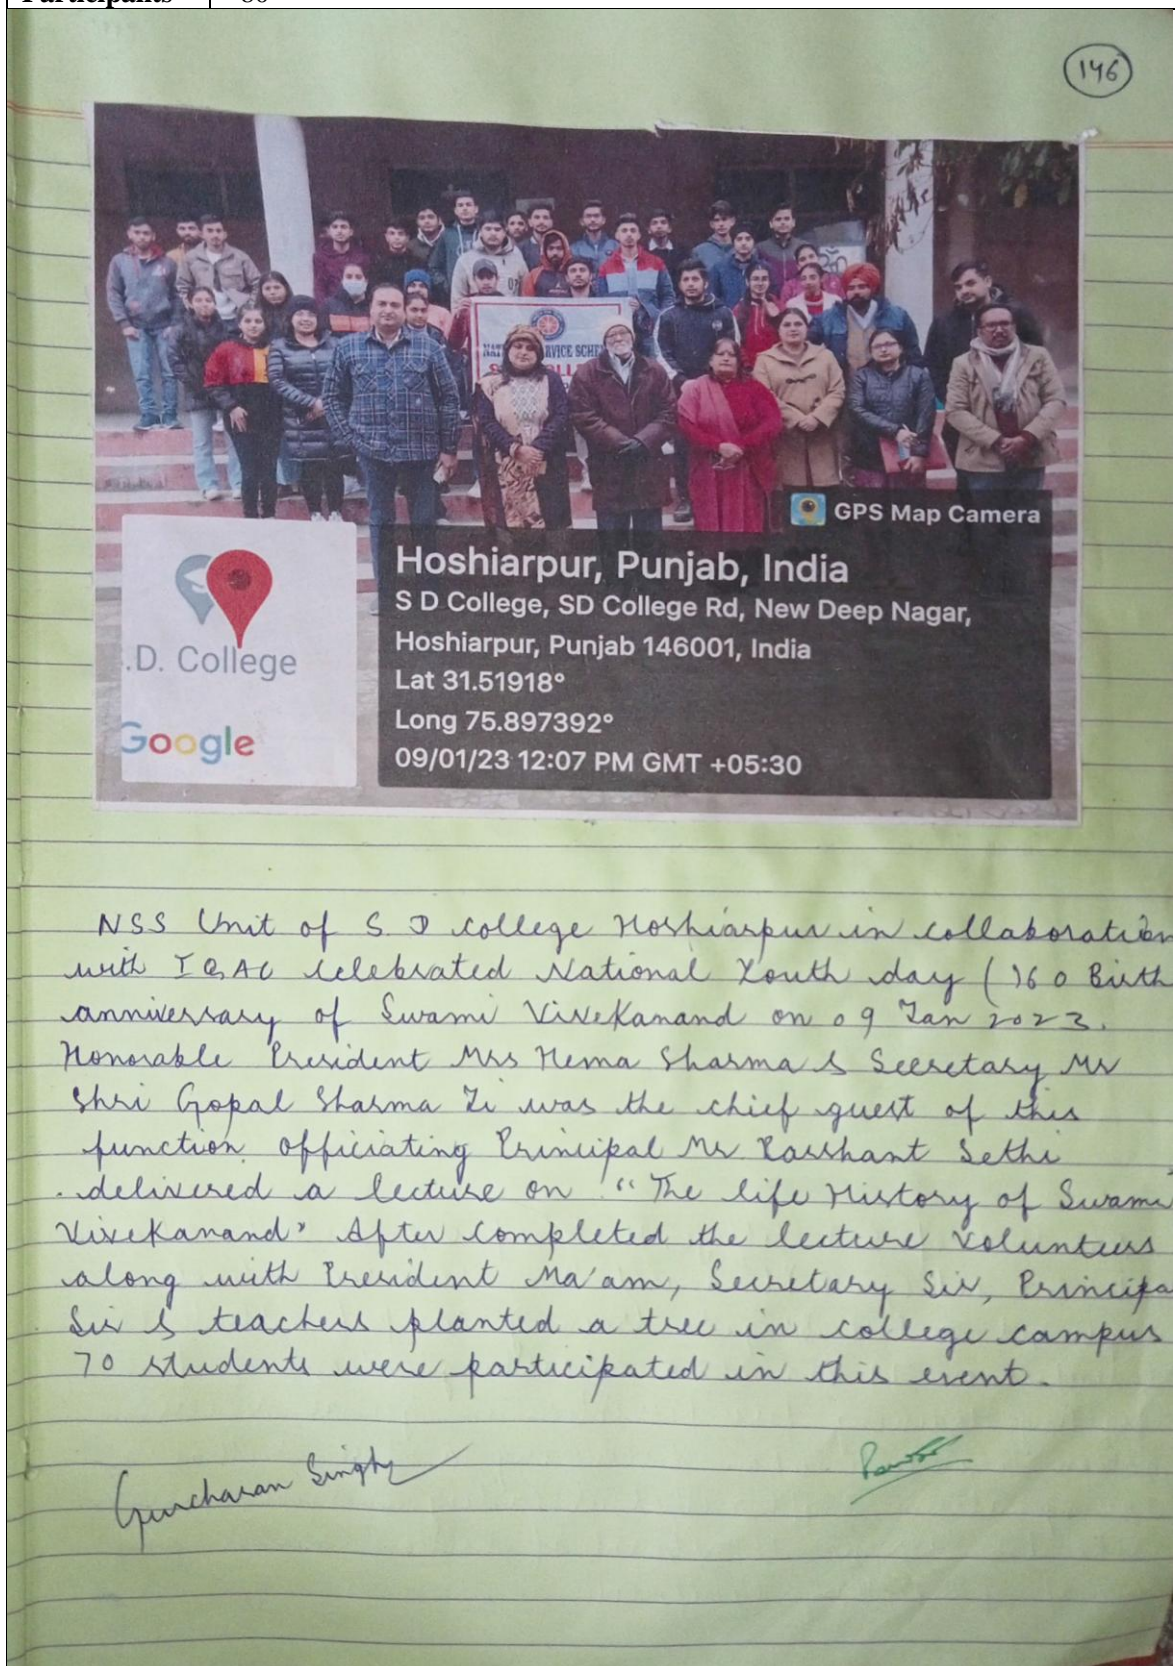 Participants
146
NATIONAL SERVICE SCHEME
GPS Map Camera
Hoshiarpur, Punjab, India
S D College, SD College Rd, New Deep Nagar,
Hoshiarpur, Punjab 146001, India
Lat 31.51918°
Long 75.897392°
09/01/23 12:07 PM GMT +05:30
.D. College
Google
NSS Unit of S. D college Hoshiarpur in collaboration
with IQAC celebrated National Youth day (160 Birth
anniversary of Swami Vivekanand on 09 Jan 2023.
Honorable President Mrs Hema Sharma & Secretary Mr
Shri Gopal Sharma Ji was the chief guest of this
function. officiating Principal Mr. Parshant Sethi
delivered a lecture on "The life History of Swami
Vivekanand" After completed the lecture volunteers
along with President Ma'am, Secretary Sir, Principa
Sir & teachers planted a tree in college campus
70 students were participated in this event.
Gurcharan Singh